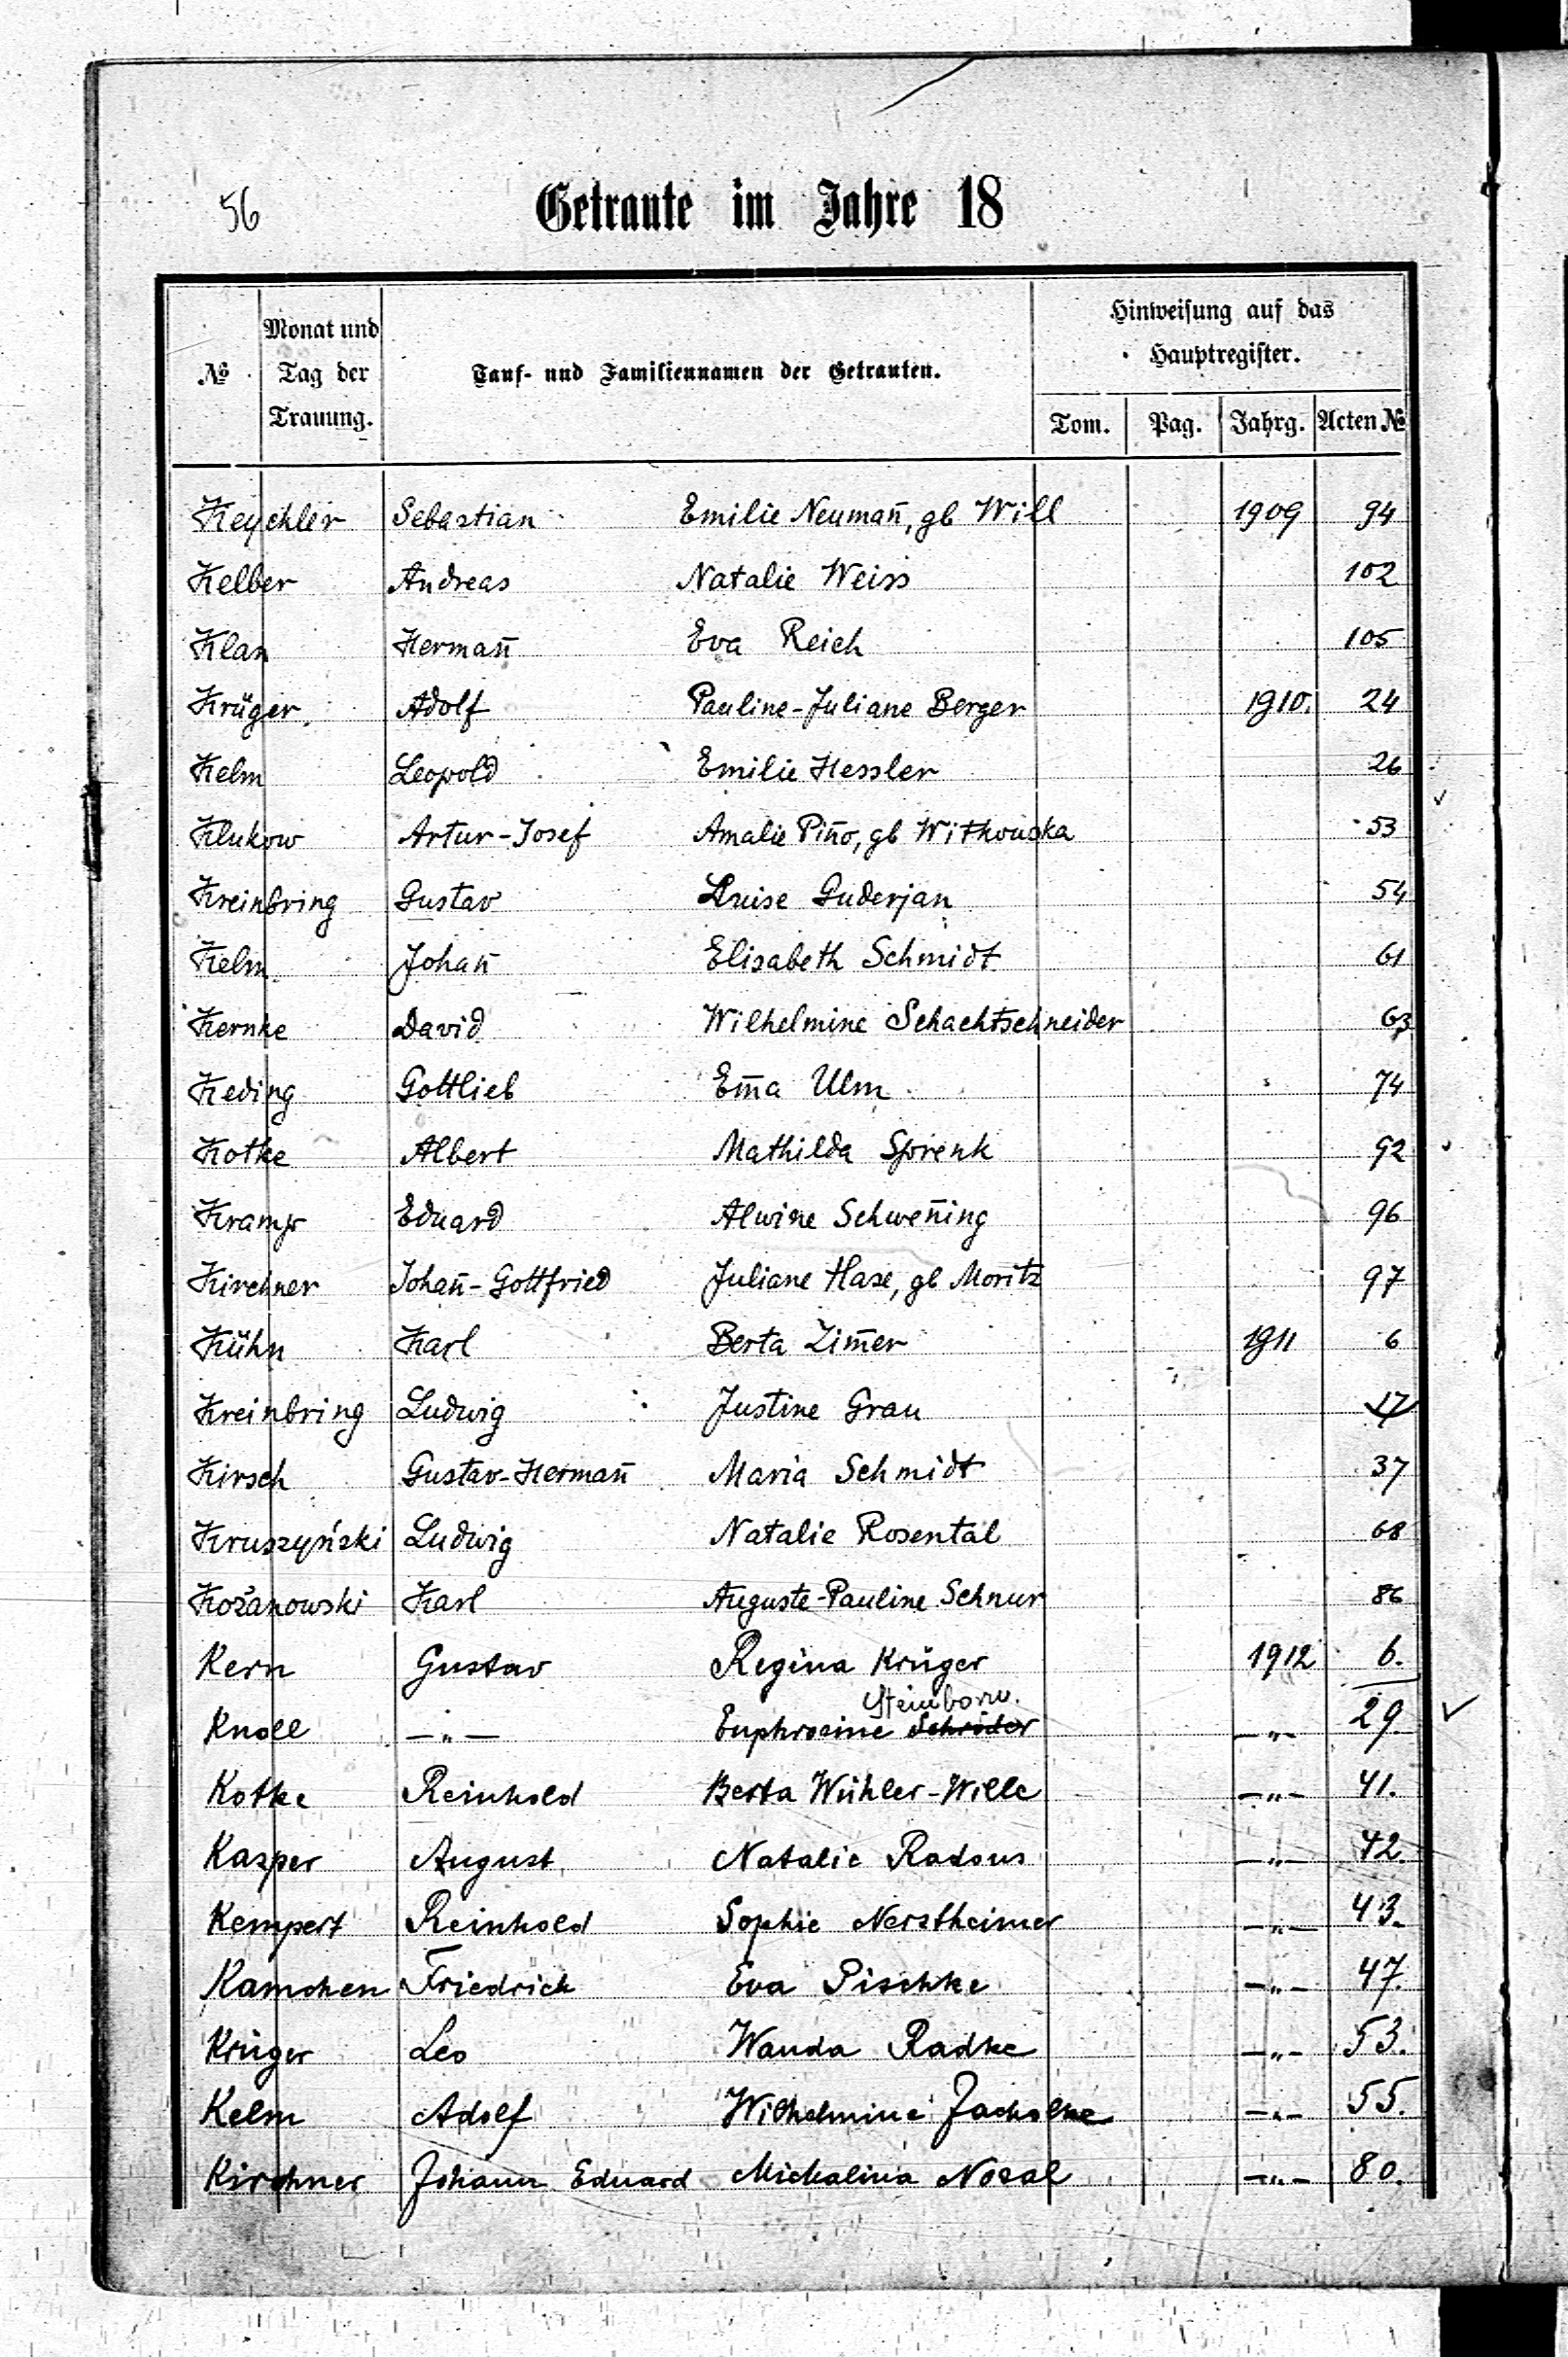 56
Getraute im Jahre 18
№ Monat und Tag der Trauung. Tauf- und Familiennamen der Getrauten. Hinweisung auf das Hauptregister.
Tom. Pag. Jahrg. Acten №
Keychler Sebastian Emilie Neumañ, gb Will 1909 94
Kelber Andreas Natalie Weiss 102
Klan Hermañ Eva Reich 105
Krüger. Adolf Pauline-Juliane Berger 1910. 24
Kelm Leopold Emilie Hessler 26
Klukow Artur-Josef Amalie Piño, gb Witkowska 53
Kreinbring Gustav Luise Guderjan 54
Kelm Johañ Elisabeth Schmidt 61
Kernke David Wilhelmine Schachtschneider 63
Keding Gottlieb Em̄a Ulm 74
Kotke Albert Mathilda Sprenk 92
Kramp Eduard Alwine Schweñing 96
Kirchner Johañ-Gottfried Juliane Hase, gb Moritz 97
Kühn Karl Berta Zim̄er 1911 6
Kreinbring Ludwig Justine Grau 17
Kirsch Gustav-Hermañ Maria Schmidt 37
Kruszyński Ludwig Natalie Rosental 68
Kożanowski Karl Auguste-Pauline Schnur 86
Kern Gustav Regina Krüger 1912 6.
Steinborn.
Knoll —„— Euphrosine Schröder —„— 29
Kotke Reinhold Berta Wühler-Wille —„— 41.
Kasper August Natalie Radous —„— 42.
Kempert Reinhold Sophie Nerstheimer —„— 43.
Kamchen Friedrich Eva Pischke —„— 47.
Krüger Leo Wanda Radke —„— 53.
Kelm Adolf Wilhelmine Jacholke —„— 55.
Kirchner Johann Eduard Michalina Nosal —„— 80.